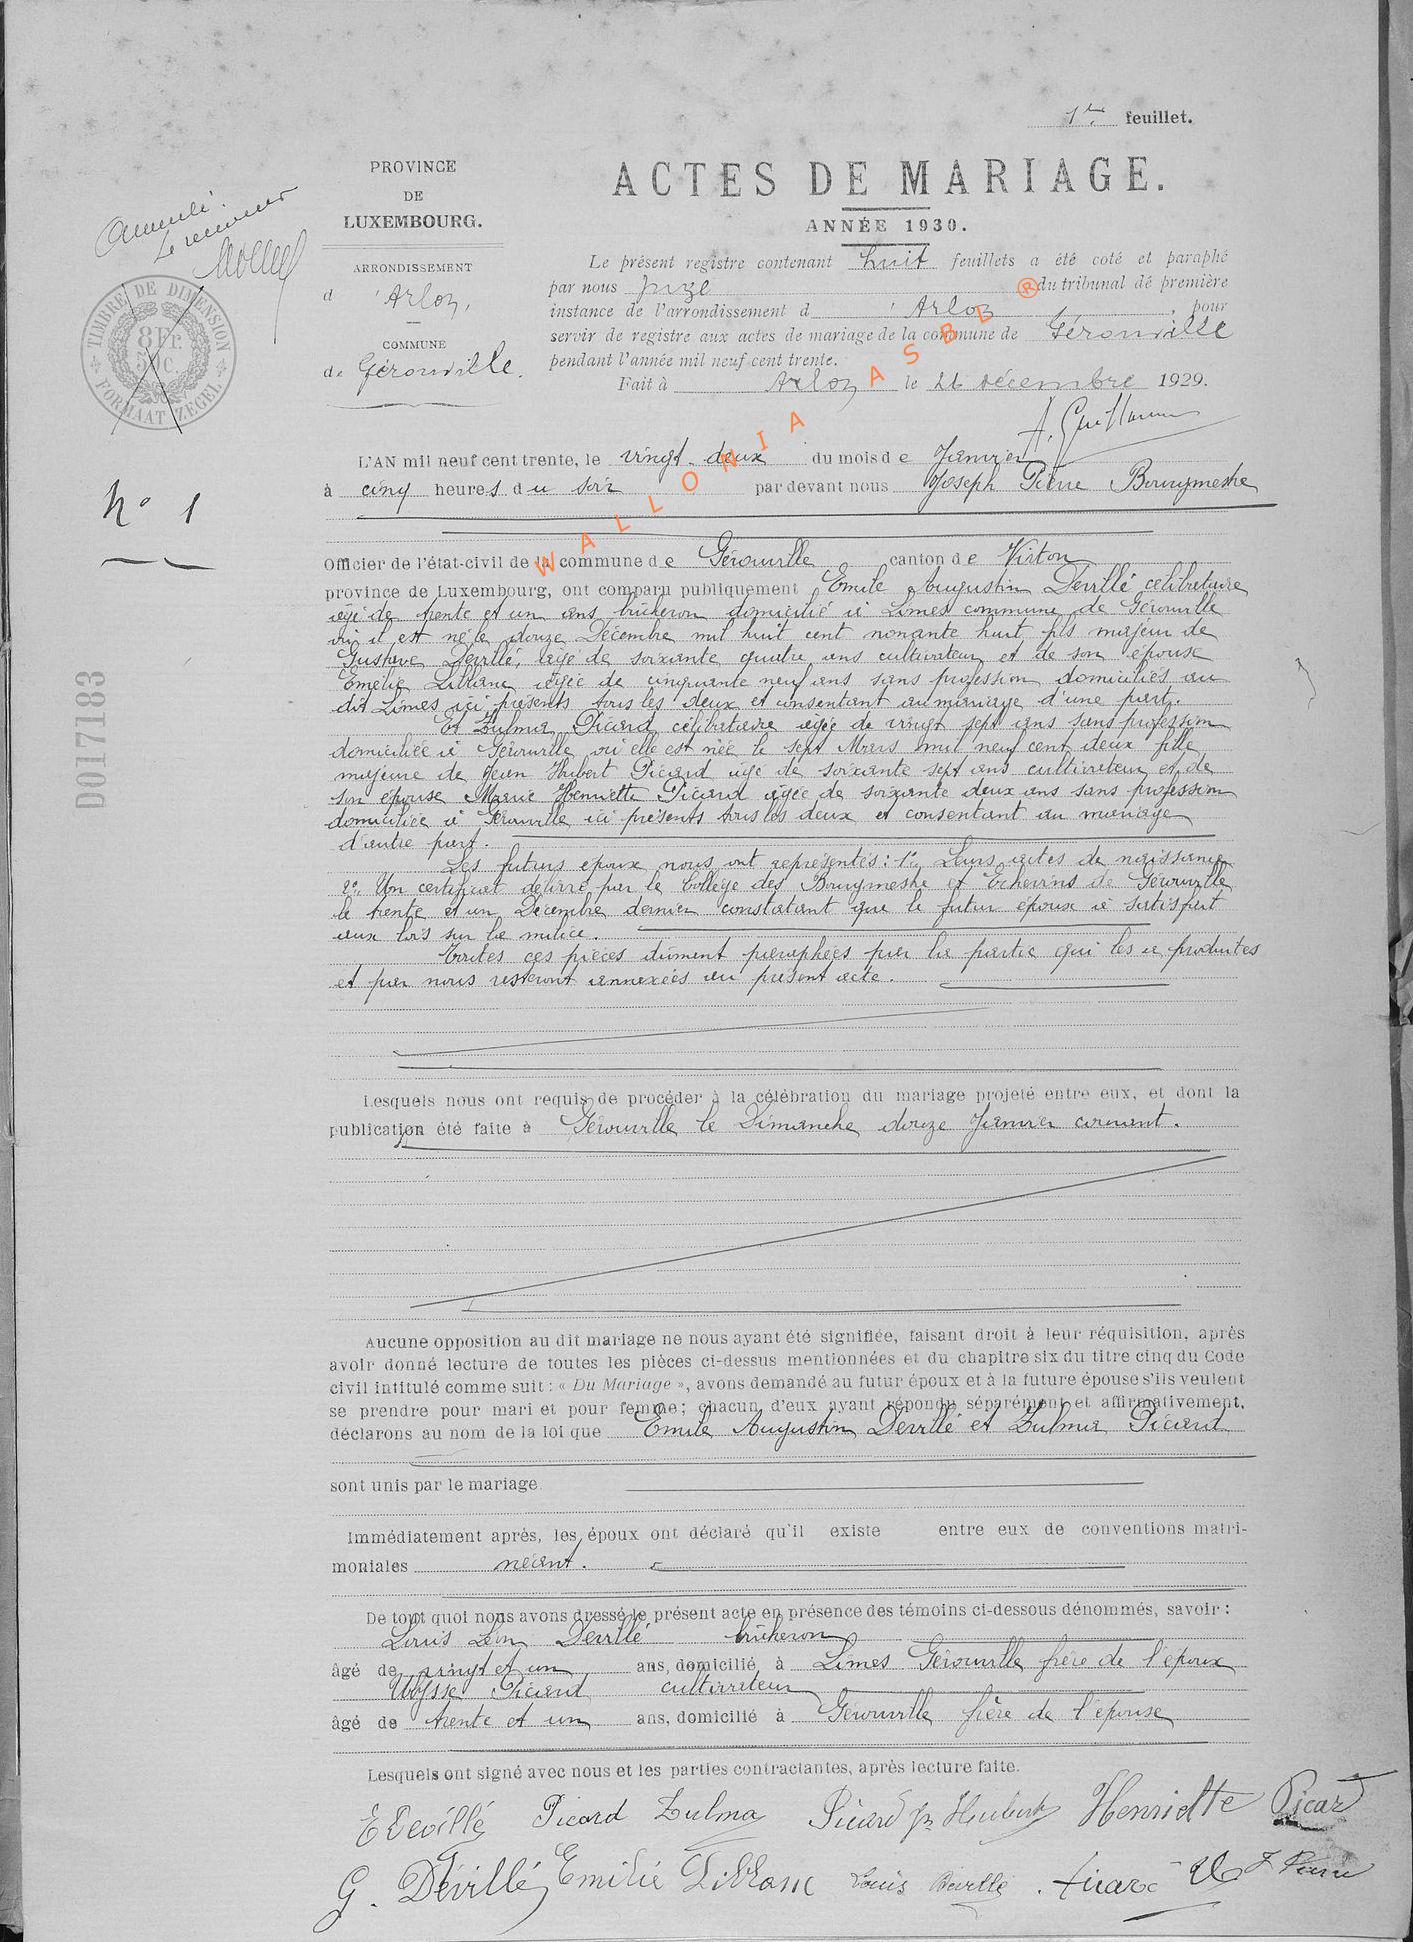 1er feuillet.
PROVINCE
DE
LUXEMBOURG.
ARRONDISSEMENT
d'Arlon,
COMMUNE
de Gérouville.
Annulé.
Le receveur
TIMBRE DE DIMENSION
8Fr.
FORMAAT ZEGEL
N° 1
D017183
ACTES DE MARIAGE.
ANNÉE 1930.
Le présent registre contenant huit feuillets a été coté et paraphé
par nous Juge du tribunal de première
instance de l'arrondissement d'Arlon, pour
servir de registre aux actes de mariage de la commune de Gérouville
pendant l'année mil neuf cent trente.
Fait à Arlon le 26 décembre 1929.
WALLONIA ASBL ®
L'AN mil neuf cent trente, le vingt-deux du mois de Janvier
à cinq heures du soir par devant nous Joseph Pierre Bourgmestre
Officier de l'état-civil de la commune de Gérouville canton de Virton
province de Luxembourg, ont comparu publiquement Emile Augustin Dévillé célibataire
âgé de trente et un ans bûcheron domicilié à Limes commune de Gérouville
où il est né le douze Décembre mil huit cent nonante huit, fils majeur de
Gustave Dévillé, âgé de soixante quatre ans cultivateur et de son épouse
Emélie Liblanc âgée de cinquante neuf ans sans profession domiciliés au
dit Limes ici présents tous les deux et consentant au mariage d'une part.
Et Zulma Picard célibataire âgée de vingt sept ans sans profession
domiciliée à Gérouville où elle est née le sept Mars mil neuf cent deux fille
majeure de Jean Hubert Picard âgé de soixante sept ans cultivateur et de
son épouse Marie Henriette Picard âgée de soixante deux ans sans profession
domiciliée à Gérouville ici présents tous les deux et consentant au mariage
d'autre part.
Les futurs époux nous ont représentés: 1° Leurs actes de naissance
2° Un certificat délivré par le Collège des Bourgmestre et Echevins de Gérouville
le trente et un Décembre dernier constatant que le futur époux a satisfait
aux lois sur la milice.
Toutes ces pièces dûment paraphées par la partie qui les a produites
et par nous resteront annexées au présent acte.
Lesquels nous ont requis de procéder à la célébration du mariage projeté entre eux, et dont la
publication été faite à Gérouville le Dimanche douze Janvier courant.
Aucune opposition au dit mariage ne nous ayant été signifiée, faisant droit à leur réquisition, après
avoir donné lecture de toutes les pièces ci-dessus mentionnées et du chapitre six du titre cinq du Code
civil intitulé comme suit : « Du Mariage », avons demandé au futur époux et à la future épouse s'ils veulent
se prendre pour mari et pour femme; chacun d'eux ayant répondu séparément et affirmativement,
déclarons au nom de la loi que Emile Augustin Dévillé et Zulma Picard
sont unis par le mariage.
Immédiatement après, les époux ont déclaré qu'il existe entre eux de conventions matri-
moniales néant.
De tout quoi nous avons dressé le présent acte en présence des témoins ci-dessous dénommés, savoir :
Louis Léon Dévillé bûcheron
âgé de vingt et un ans, domicilié à Limes Gérouville frère de l'époux
Ulysse Picard cultivateur
âgé de trente et un ans, domicilié à Gérouville frère de l'épouse
Lesquels ont signé avec nous et les parties contractantes, après lecture faite.
E Dévillé Picard Zulma Picard Jn Hubert Henriette Picard
G. Dévillé Emélie Liblanc Louis Dévillé Picard U J Pierre